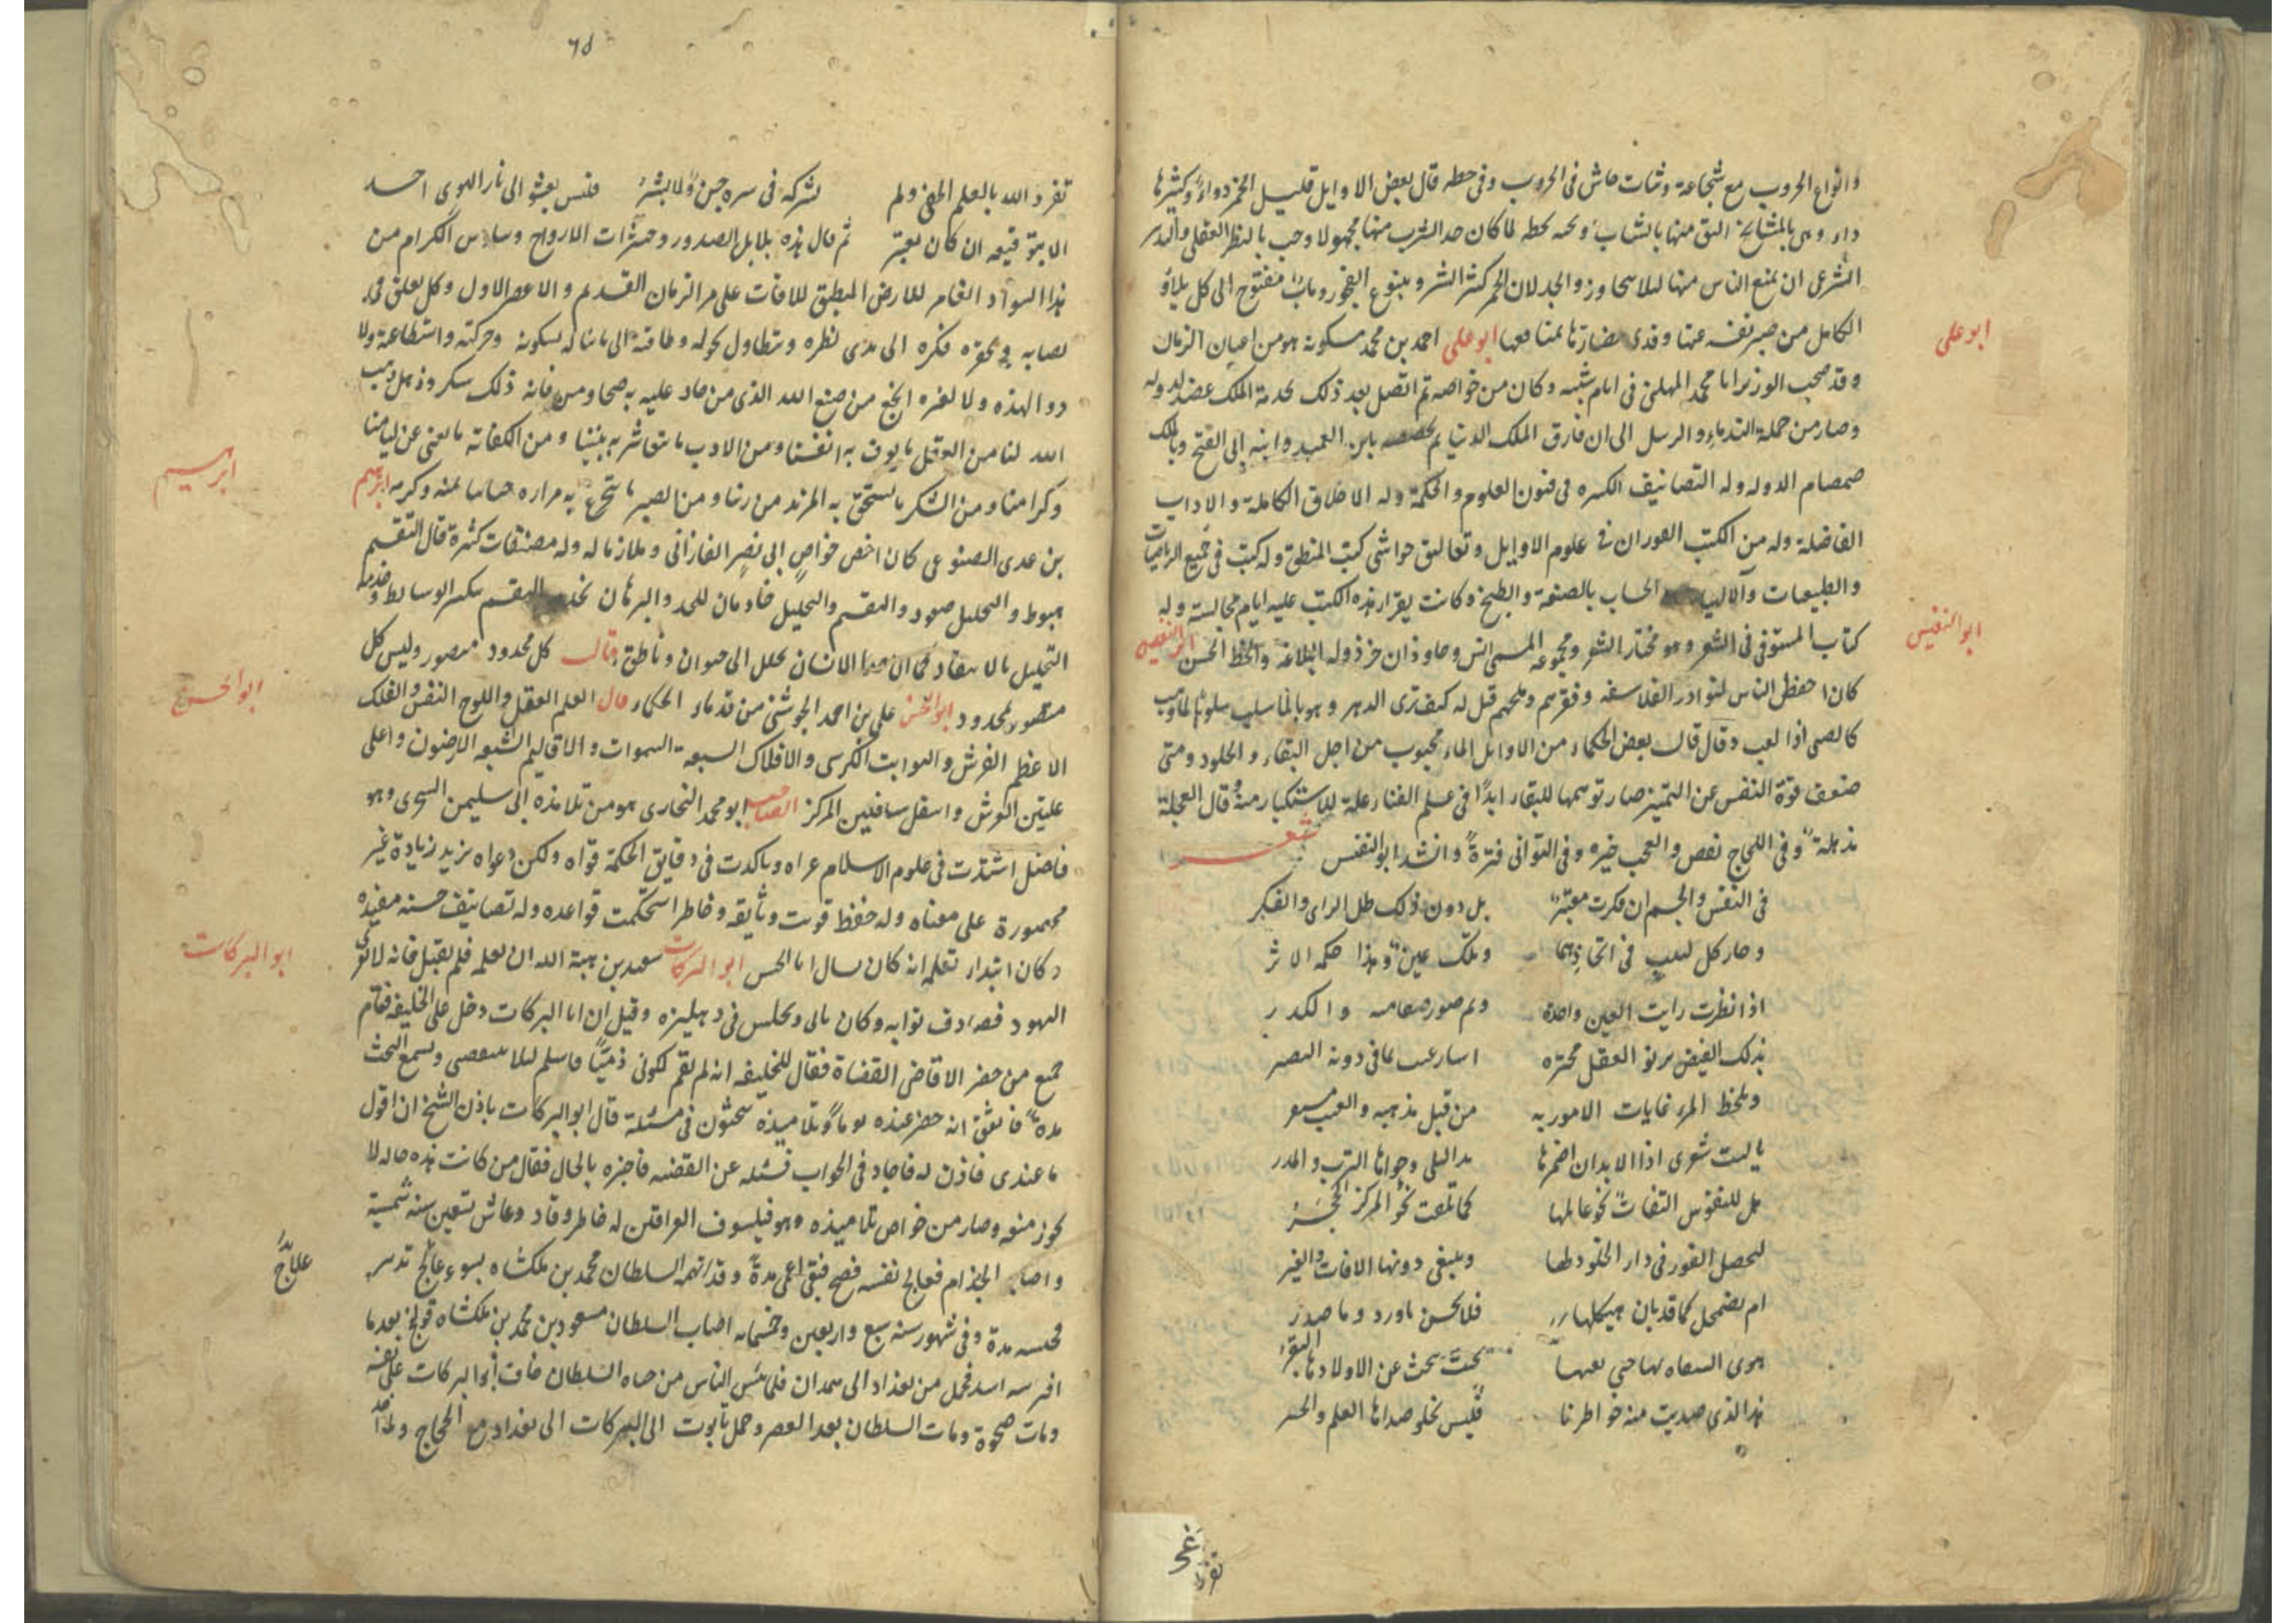 وانواع الحروب مع شجاعة وثبات جاش فى الحروب وفى خطه قال بعض الاوايل قليل الخمر دواء وكثيرها
داء وهى بالمشايخ اليق منها بالشاب لما كان حد الشرب منها مجهولا وجب بالنظر العقلى
الشرعى ان يمنع الناس منها ليلا الحد لان الخمر كثير الشر وينبوع الفجور وباب مفتوح الى كل بلاء
الكامل من صبر نفسه عنها وفدى مضارها بمنافعها ابو على احمد بن محمد مسكويه هو من اعيان الزمان
ابو على
وقد صحب الوزير ابا محمد المهلبى فى ايام وكان من خواصه ثم اتصل بعد ذلك بخدمة الملك عضد الدولة
وصار من جملة الندماء والرسل الى ان فارق الملك الدنيا ثم بابن العميد وابنه ابى الفتح
صمصام الدوله وله التصانيف الكبيره فى فنون العلوم والحكمة وله الاخلاق الكاملة والاداب
الفاضلة وله من الكتب الفوزان فى علوم الاوايل وتعاليق حواشى كتب المنطق وله كتب فى جميع الرياضيات
والطبيعات والالهيات الحساب بالصنعة والطبخ وكانت يقرأ هذه الكتب عليه ايام مجالسته وله
كتاب المستوفى فى الشعر وهو مختار الشعر ومجموعه المسمى انس وجاوذان خرذ وله البلاغة والخط الحسن ابو النفيس
ابو النفيس
كان احفظ الناس لنوادر الفلاسفه وفقرهم وملحهم قيل له كيف ترى الدهر
كالصبى اذا لعب وقال قال بعض الحكماء من الاوايل الماء محبوب من اجل البقاء والخلود ومتى
ضعف قوة النفس عن التمييز صار توسمها للبقاء ابدا فى علم الفناء علة للاستكبار منه وقال العجلة
مذهلة وفى اللجاج نقص والعجب خيره وفى التوانى فترة وانشد ابو النفيس شعر
فى النفس والجسم ان فكرت معتبر بل دون ذلك ظل الراى والفكر
وحار كل لبيب فى اتحادهما وتلك عين وهذا حكمه الاثر
اذا نظرت رايت العين واحدة والكدر
بذلك الفيض يرنو العقل دونه البصر
ويلحظ المرء غايات الامور به من قبل مذهبه
يا ليت شعرى اذا الابدان اضمرها الترب والمدر
هل للنفوس التفات نحو عالمها كما تلفت نحو المركز الحجر
لتحصل الفوز فى دار الخلود لها ويبقى دونها الافات والغير
ام يضمحل كما قد بان هيكلها فلا يحس ماورد وما صدر
بحث عن الاولادها البقر
هذا الذى صديت منه خواطرنا فليس يجلو صداها العلم
تفرد
٦٥
تفرد الله بالعلم الخفى ولم يشركه فى سره جن ولا بشر فليس يعشو الى نار الهوى احد
الا بتوفيقه ان كان يعتبر ثم قال هذه بلابل الصدور وحسرات الارواح وساوس الكرام من
هذا السواد الغامر للارض المطبق للافات على مر الزمان القديم والاعصر الاول وكل يعلق فى
نصابه فكره الى مدى نظره ويتطاول بحوله وطاقته الى ما يناله بسكونه وحركته واستطاعة ولا
دوا لهذه ولا لغيره انجع من صنع الله الذى من جاد عليه به صحا ومن فاته ذلك سكر وذهل وهب
الله لنا من العقل ما يعرف به انفسنا ومن الادب ما نتعاشر به بيننا ومن الكفاية ما يغنى عن ليامنا
وكرامنا ومن الشكر ما يستحق به المزيد من ربنا ومن الصبر ما نتجرع به مراره حياتنا بمنه وكرمه ابرهيم
ابرهيم
بن عدى كان اخص خواص ابى نصر الفارابى وملازما له وله مصنفات كثيرة قال التقسيم
هبوط والتحليل صعود والتقسيم والتحليل خادمان للحد والبرهان
التحليل كما ان حد الانسان يحلل الى حيوان وناطق وقال كل محدود متصور وليس كل
متصور بمحدود ابو الحسن على بن احمد من قدماء الحكماء قال القلم العقل واللوح النفس والفلك
ابو الحسن
الاعظم العرش والثوابت الكرسى والافلاك السبعة السموات والاقاليم السبعه الارضون واعلى
عليين العرش واسفل سافلين المركز الصاحب ابو محمد البخارى هو من تلامذه ابى سليمن السجزى وهو
فاضل اشتدت فى علوم الاسلام عراه وتاكدت فى دقايق الحكمة قواه ولكن دعواه يزيد زيادة غير
محصورة على معناه وله حفظ قويت وثايقه وخاطر استحكمت قواعده وله تصانيف حسنه مفيده
وكان ابتداء تعلمه انه كان سال ابا الحسن ابو البركات سعيد بن هبة الله ان يعلمه فلم يقبل فانه لا يقرى
ابو البركات
اليهود فصادف بوابه وكان ياتى ويجلس فى دهليزه وقيل ان ابا البركات دخل على الخليفه فقام
جميع من حضر الا قاضى القضاة فقال للخليفه انه لم يقم لكونى ذميا فاسلم ويسمع البحث
مدة فاتفق انه حضر عنده يوما وتلاميذه يبحثون فى مسئلة قال ابو البركات باذن الشيخ ان اقول
ما عندى فاذن له فاجاد فى الجواب فسئله عن القضيه فاخبره بالحال فقال من كانت هذه حاله لا
يجوز منعه وصار من خواص تلاميذه وهو فيلسوف العراقين له خاطر وقاد وعاش تسعين سنه شمسية
واصابه الجذام فعالج نفسه فصح فبقى اعمى مدة وقد اتهمه السلطان محمد بن ملكشاه بسوء علاج
علاج
فحبسه مدة وفى شهور سنه سبع واربعين وخمسمايه اصاب السلطان مسعود بن محمد بن ملكشاه قولنج بعد ما
افترسه اسد فحمل من بغداد الى همدان فلما يئس الناس من حياه السلطان خاف ابو البركات على نفسه
ومات ضحوة ومات السلطان بعد العصر وحمل تابوت ابى البركات الى بغداد مع الحجاج